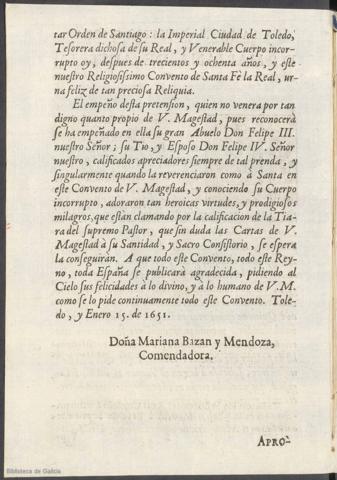 tar Orden de Santiago: la Imperial Ciudad de Toledo,
Tesorera dichosa de su Real, y Venerable Cuerpo incor-
rupto oy, despues de trecientos y ochenta años, y este
nuestro Religiosissimo Convento de Santa Fè la Real, ur-
na feliz de tan preciosa Reliquia.
El empeño desta pretension, quien no venera por tan
digno quanto propio de V. Magestad, pues reconocerà
se ha empeñado en ella su gran Abuelo Don Felipe III.
nuestro Señor; su Tio, y Esposo Don Felipe IV. Señor
nuestro, calificados apreciadores siempre de tal prenda, y
singularmente quando la reverenciaron como à Santa en
este Convento de V. Magestad, y conociendo su Cuerpo
incorrupto, adoraron tan heroicas virtudes, y prodigiosos
milagros, que estàn clamando por la calificacion de la Tia-
ra del supremo Pastor, que sin duda las Cartas de V.
Magestad à su Santidad, y Sacro Consistorio, se espera
la conseguiràn. A que todo este Convento, todo este Rey-
no, toda España se publicarà agradecida, pidiendo al
Cielo sus felicidades à lo divino, y à lo humano de V.M.
como se lo pide continuamente todo este Convento. Tole-
do, y Enero 15. de 1651.
Doña Mariana Bazan y Mendoza,
Comendadora.
APRO-
Biblioteca de Galicia